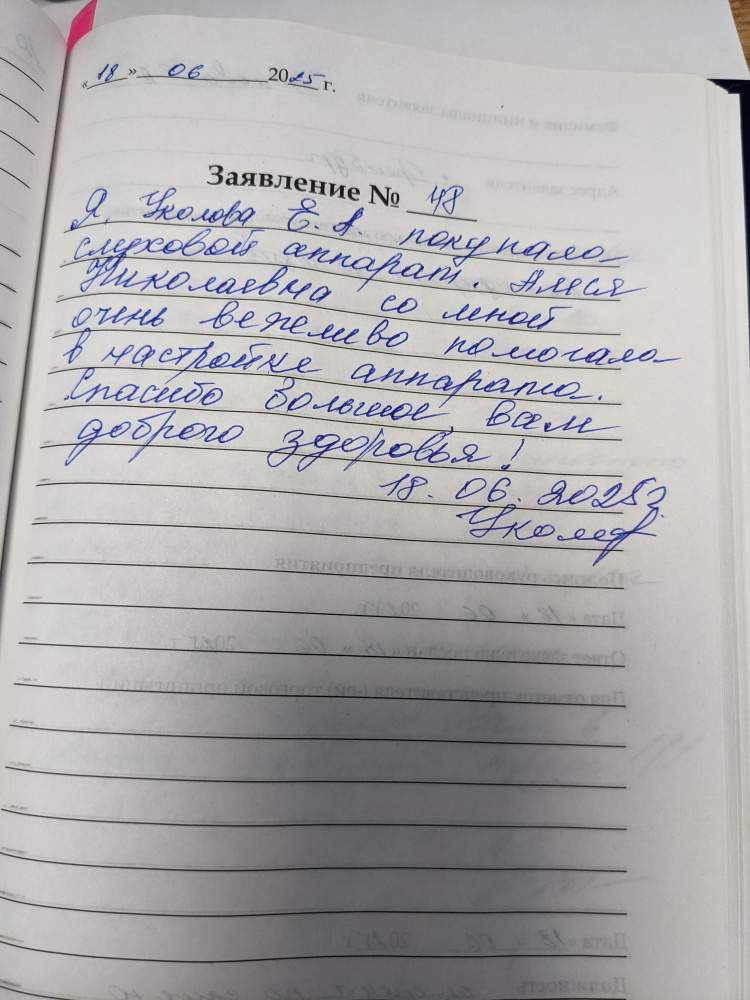 «18» 06 2025 г.
Заявление № 48
Я, Уколова Е. А. покупала
слуховой аппарат. Алеся
Николаевна со мной
очень вежливо помогала
в настройке аппарата.
Спасибо большое, всем
доброго здоровья!
18. 06. 2025г.